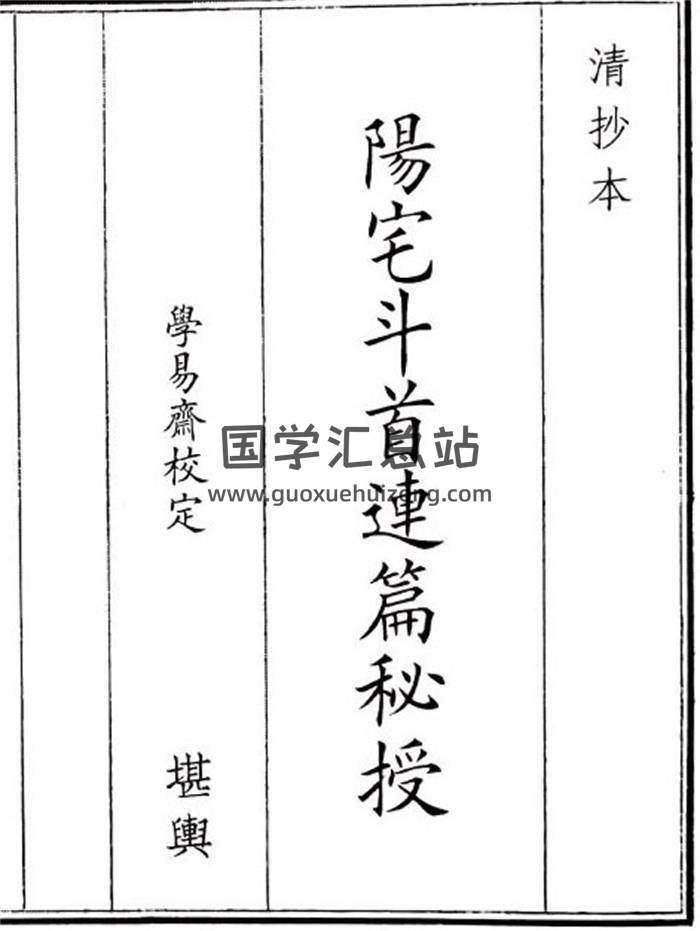 清抄本
陽宅斗首連篇秘授
學易齋校定
堪輿
国学汇总站
www.guoxuehuizong.com